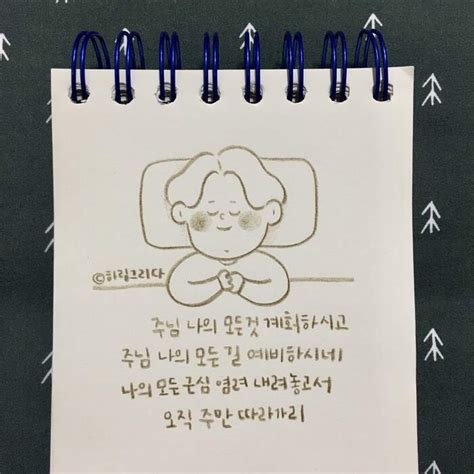 ©하림그리다
주님 나의 모든것 계획하시고
주님 나의 모든 길 예비하시네
나의 모든 근심 염려 내려놓고서
오직 주만 따라가리